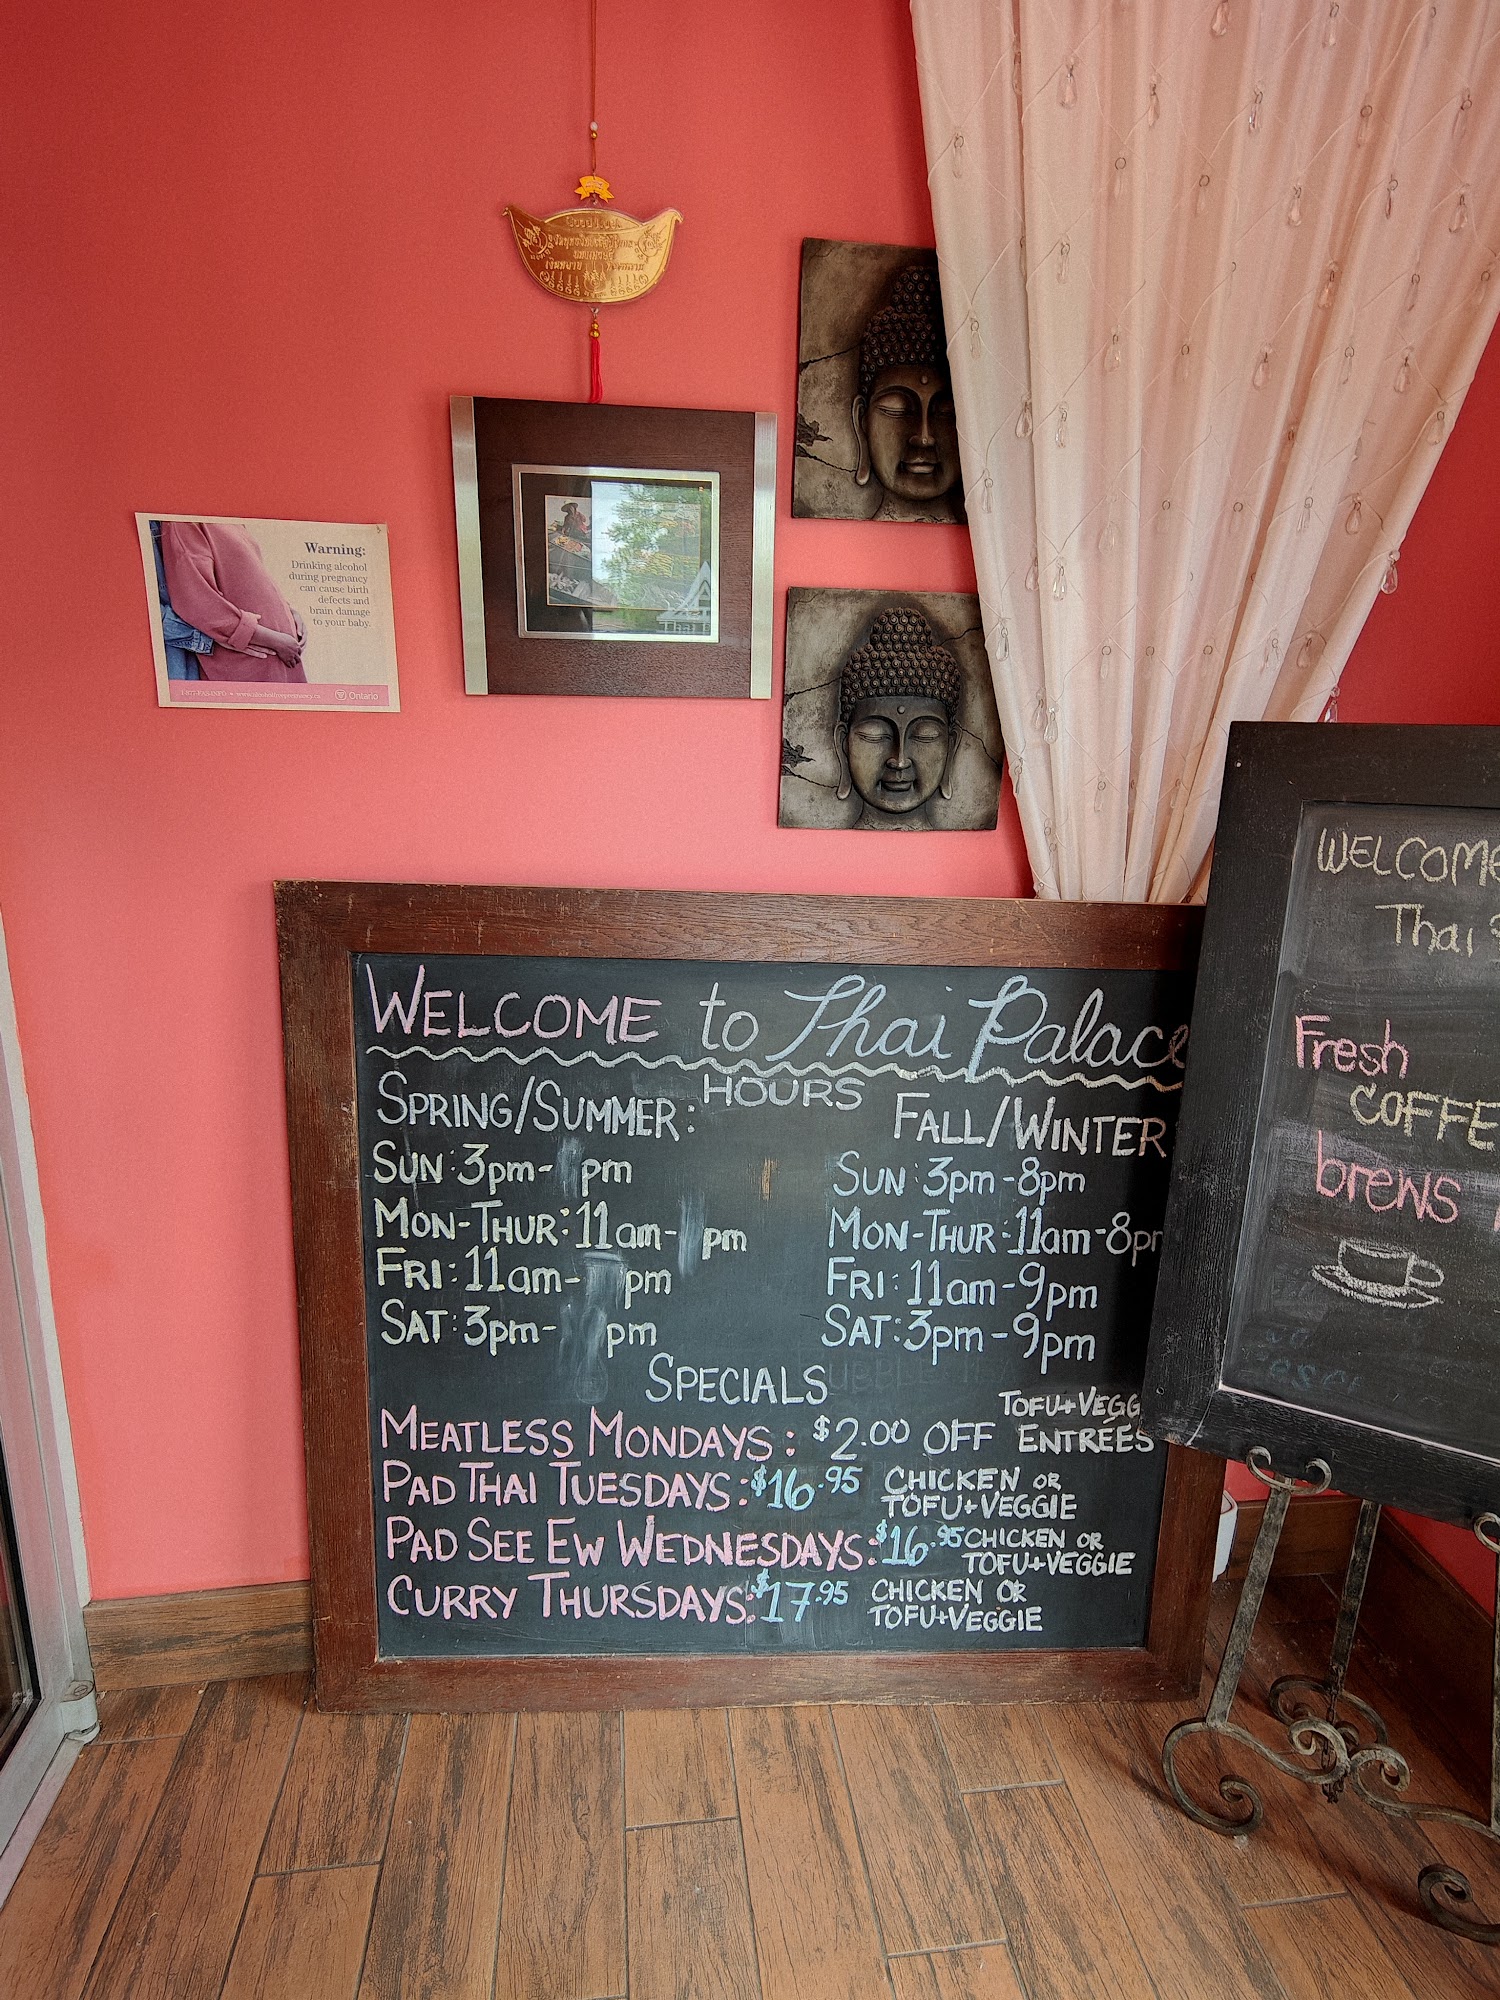 Warning:
Drinking alcohol
during pregnancy
can cause birth
defects and
brain damage
to your baby.
Ontario
WELCOME to Thai Palace
HOURS
SPRING/SUMMER:
SUN: 3pm- pm
MON-THUR: 11am- pm
FRI: 11am- pm
SAT: 3pm- pm
FALL/WINTER
SUN: 3pm-8pm
MON-THUR: 11am-8pm
FRI: 11am-9pm
SAT: 3pm-9pm
SPECIALS
MEATLESS MONDAYS: $2.00 OFF TOFU+VEGG
ENTRÉES
PAD THAI TUESDAYS: $16.95 CHICKEN OR
TOFU+VEGGIE
PAD SEE EW WEDNESDAYS: $16.95 CHICKEN OR
TOFU+VEGGIE
CURRY THURSDAYS: $17.95 CHICKEN OR
TOFU+VEGGIE
WELCOME
Thai
Fresh
COFFE
brews